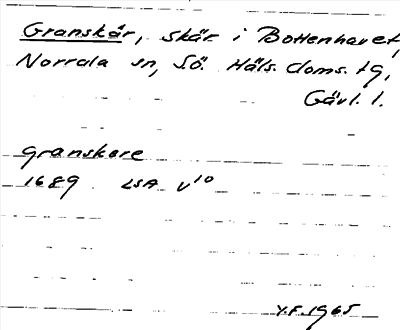 Granskär, skär i Bottenhavet,
Norrala sn, Sö. Häls. doms. tg,
Gävl. l.
granskare
1689 LSA V¹⁰
Y.F. 1965